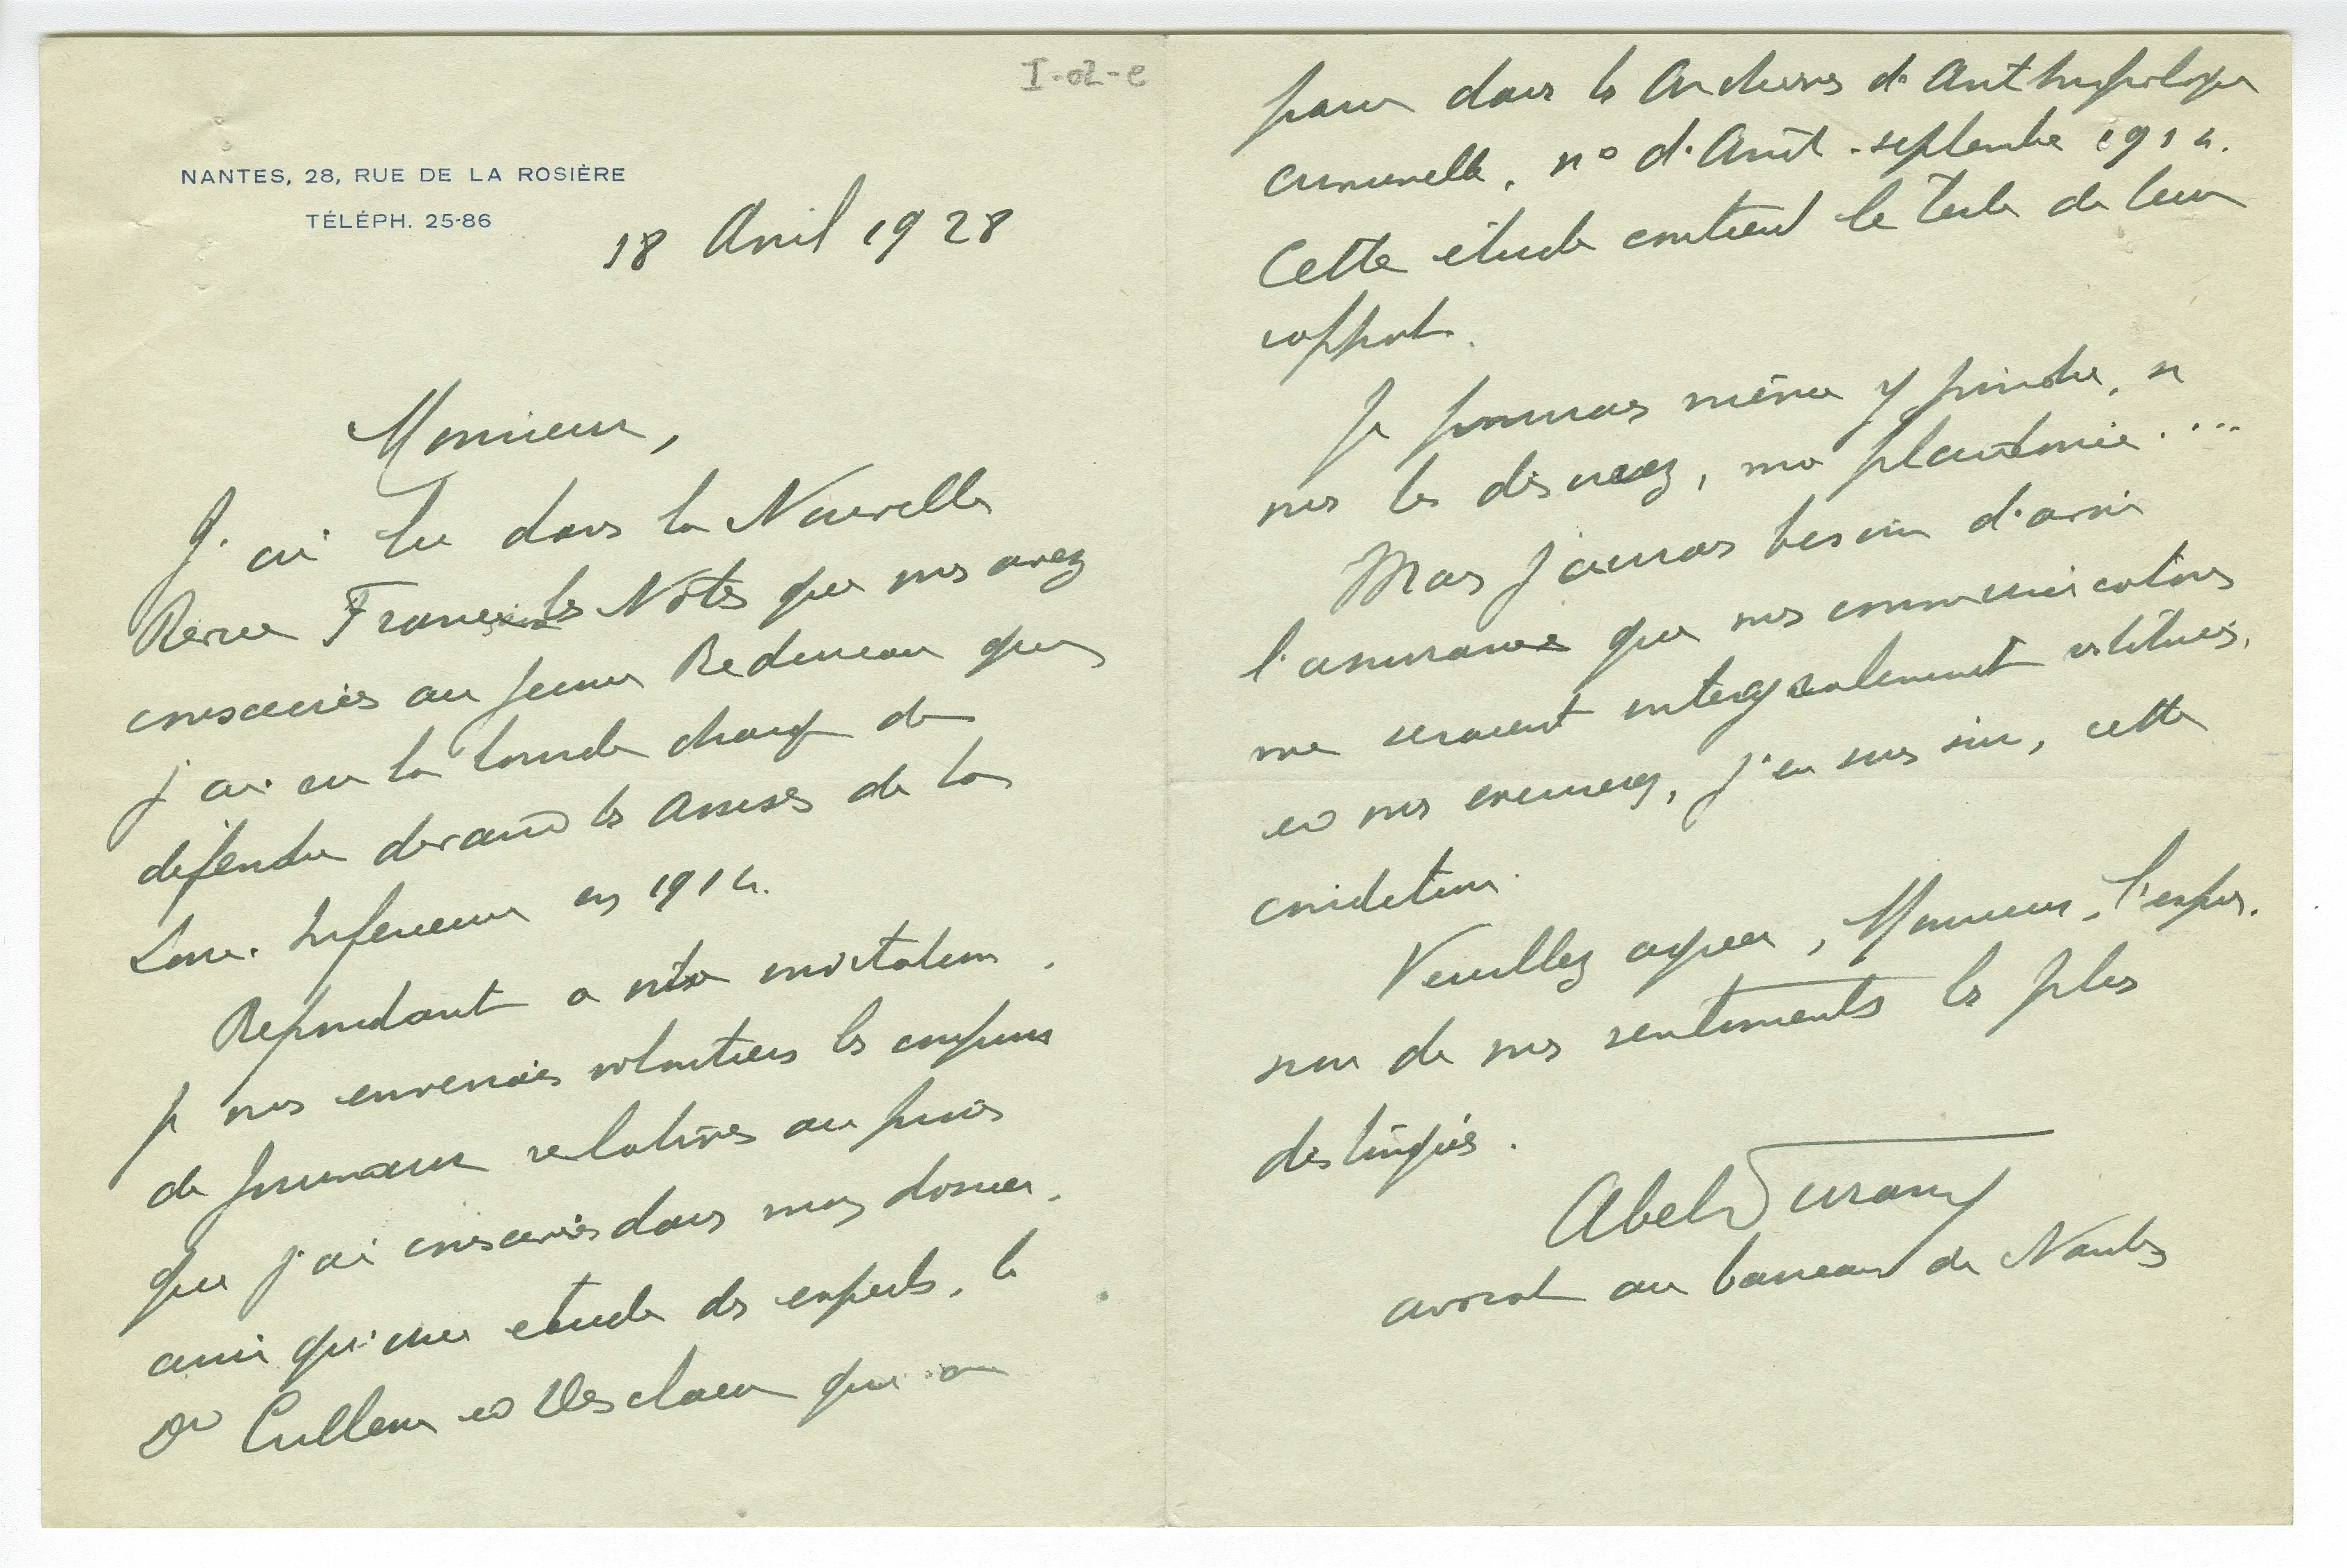 I-02-e
NANTES, 28, RUE DE LA ROSIÈRE
TÉLÉPH. 25-86
18 Avril 1928
Monsieur,
J'ai lu dans la Nouvelle
Revue Française les Notes que vous avez
consacrées au jeune Redureau que
j'ai eu la lourde charge de
défendre devant les Assises de la
Loire-Inférieure en 1914.
Répondant à votre invitation,
je vous enverrais volontiers les coupures
de journaux relatives au procès
que j'ai conservées dans mon dossier,
ainsi qu'une étude des experts, les
Drs Cullerre et Desclaux qui a
paru dans les Archives d'Anthropologie
criminelle, n° d'Août-septembre 1914.
Cette étude contient le texte de leur
rapport.
Je pourrais même y joindre, si
vous le désirez, ma plaidoirie....
Mais j'aurais besoin d'avoir
l'assurance que mes communications
me seraient intégralement restituées,
et vous excuserez, j'en suis sûr, cette
condition.
Veuillez agréer, Monsieur, l'expres-
sion de mes sentiments les plus
distingués.
Abel Durand
avocat au barreau de Nantes